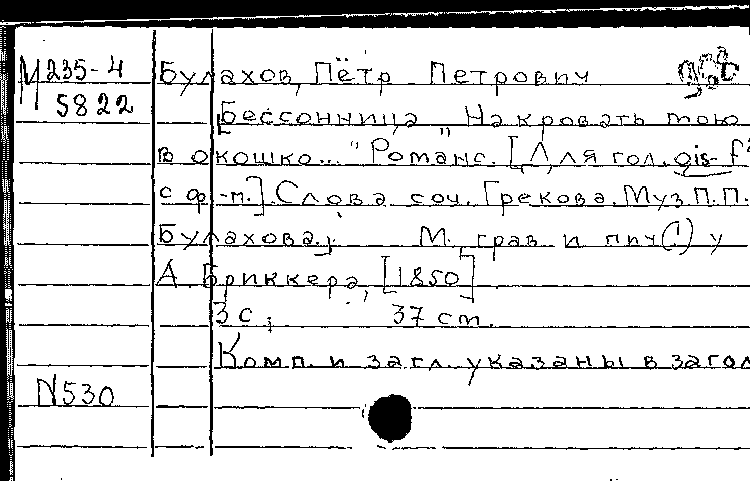 М 235-4 Булахов, Пётр Петрович
5822 Бессонница „На кровать мою
в окошко..." Романс. [Для гол. gis-f²
с ф.-п.]. Слова соч. Грекова. Муз. П.П.
Булахова. М., грав. и пич(!) у
А. Бриккера, [1850]
3 с.; 37 см.
Комп. и загл. указаны в загол
N530